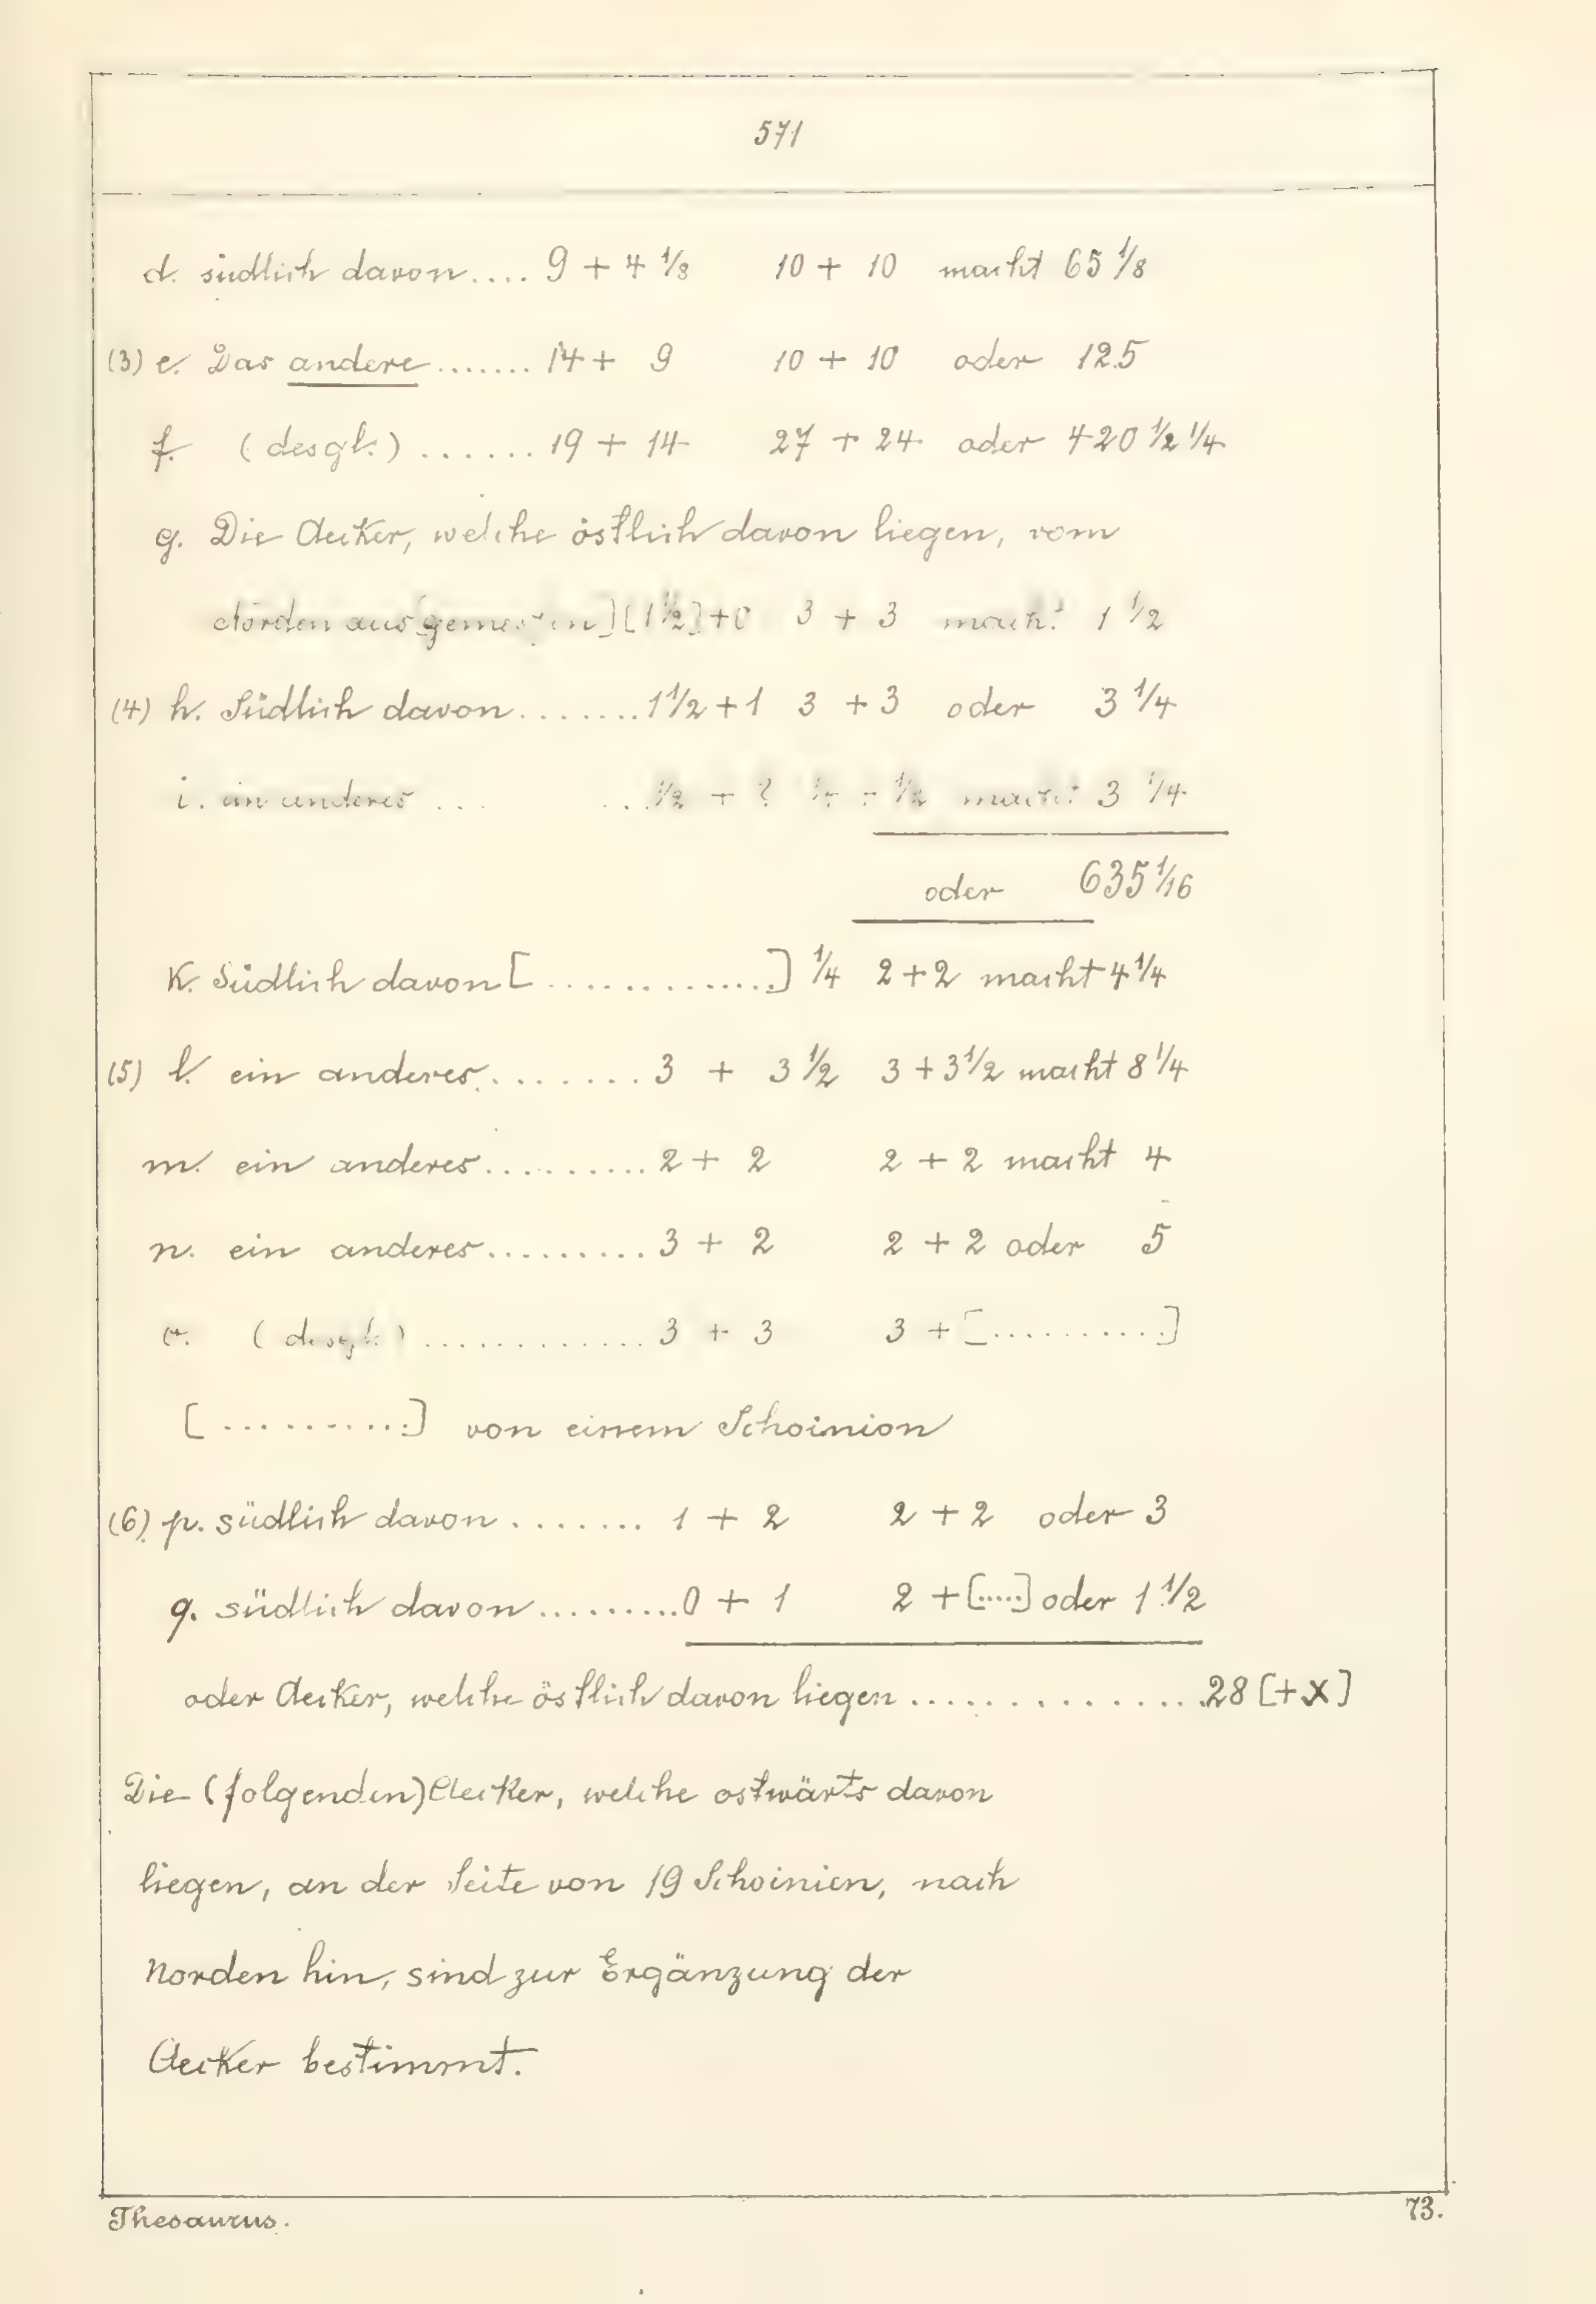 571
d. südlich davon.... 9 + 4 1/8 10 + 10 macht 65 1/8
(3) e. Das andere ....... 14 + 9 10 + 10 oder 125
f. (desgl.) ....... 19 + 14 27 + 24 oder 420 1/2 1/4
g. Die Aecker, welche östlich davon liegen, vom
Norden aus [gemessen] [1 1/2] + 0 3 + 3 macht 1 1/2
(4) h. Südlich davon ........ 1 1/2 + 1 3 + 3 oder 3 1/4
i. ein anderes ... ... 1/2 + ? + 1/2 macht 3 1/4
oder 635 1/16
k. Südlich davon [..............] 1/4 2 + 2 macht 4 1/4
(5) l. ein anderes ........ 3 + 3 1/2 3 + 3 1/2 macht 8 1/4
m. ein anderes .......... 2 + 2 2 + 2 macht 4
n. ein anderes .......... 3 + 2 2 + 2 oder 5
o. (desgl.) ............. 3 + 3 3 + [...........]
[...........] von einem Schoinion
(6). p. südlich davon ....... 1 + 2 2 + 2 oder 3
q. südlich davon .......... 0 + 1 2 + [.....] oder 1 1/2
oder Aecker, welche östlich davon liegen .............. 28 [+ x]
Die (folgenden) Aecker, welche ostwärts davon
liegen, an der Seite von 19 Schoinien, nach
Norden hin, sind zur Ergänzung der
Aecker bestimmt.
Thesaurus. 73.